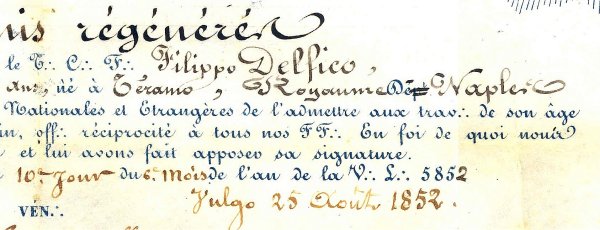 nis régénérés
le T∴ C∴ F∴ Filippo Delfico,
ans, né à Téramo, Royaume De Naples
Nationales et Etrangères de l'admettre aux trav∴ de son âge
in, off∴ réciprocité à tous nos FF∴ En foi de quoi nous
et lui avons fait apposer sa signature.
10e Jour du 6e Mois de l'an de la V∴ L∴ 5852
Vulgo 25 Août 1852.
VÉN∴